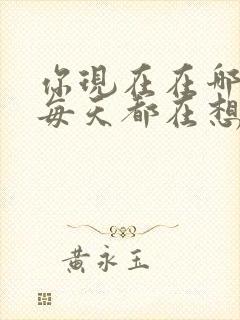 你現在在哪
每天都在想
黃永玉